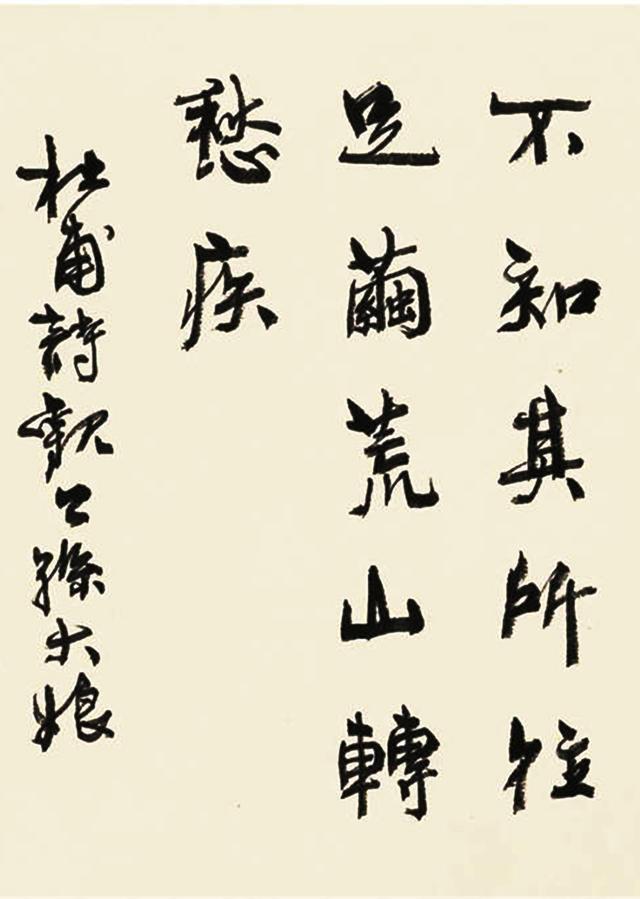 不知其所往
足繭荒山轉
愁疾
杜甫詩觀公孫大娘